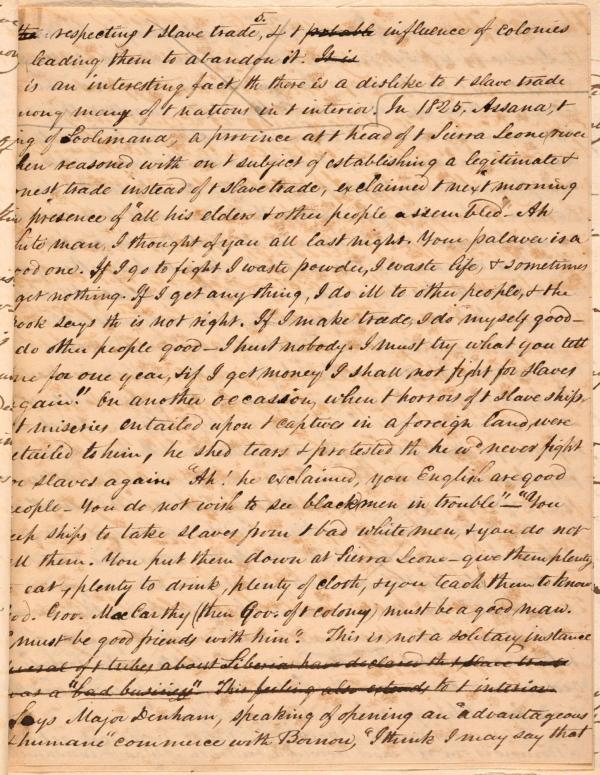 5.
the respecting t slave trade, & t probable influence of colonies
leading them to abandon it. It is
is an interesting fact th there is a dislike to t slave trade
mong many of t nations in t interior. In 1825, Assana, t
ng of Soolimana, a province at t head of t Sierra Leone river
hen reasoned with on t subject of establishing a legitimate &
nest trade instead of t slave trade, exclaimed t next morning
presence of "all his elders & other people assembled"- Ah
hite man, I thought of you all last night. Your palaver is a
ood one. If I go to fight I waste powder, I waste life, & sometimes
get nothing. If I get any thing, I do ill to other people, & the
ook says th is not right. If I make trade, I do myself good-
do other people good- I hurt nobody. I must try what you tell
me for one year, & if I get money I shall not fight for slaves
again." On another occasion, when t horrors of t slave ships
t miseries entailed upon t captives in a foreign land, were
etailed to him, he shed tears & protested th he wd never fight
r slaves again. "Ah! he exclaimed, you English are good
eople- You do not wish to see black men in trouble"- "You
eep ships to take slaves from t bad white men, & you do not
ll them. You put them down at Sierra Leone- give them plenty
eat, plenty to drink, plenty of cloth, & you teach them to know
od. Gov. MacCarthy (then Gov. of t colony) must be a good man.
must be good friends with him". This is not a solitary instance
several of t tribes about Liberia have declared tht slave trade
was a "bad business" This feeling also extends to t interior.
Says Major Denham, speaking of opening an "advantageous
& humane" commerce with Bornou, "I think I may say that